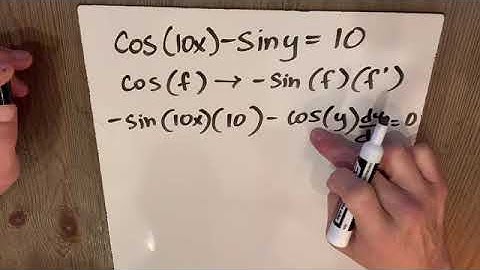 Cos(10x)-Sin y = 10
cos(f) → -Sin(f)(f')
-Sin(10x)(10) - cos(y) dy = 0